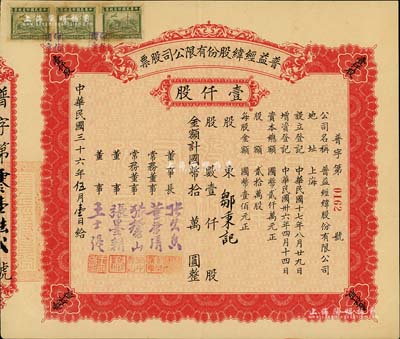 普益經緯股份有限公司股票
壹仟股
普字第0162號
公司名稱 普益經緯股份有限公司
地址 上海
設立登記 中華民國十七年八月廿九日
增資登記 中華民國卅六年四月十四日
資本總額 國幣貳仟萬元正
股數 貳拾萬股
每股金額 國幣壹佰元正
股東 鄒秉記
股數壹仟股
金額計國幣拾萬圓整
董事長
常務董事
常務董事
董事
董事
中華民國三十六年伍月壹日給
普字第
號